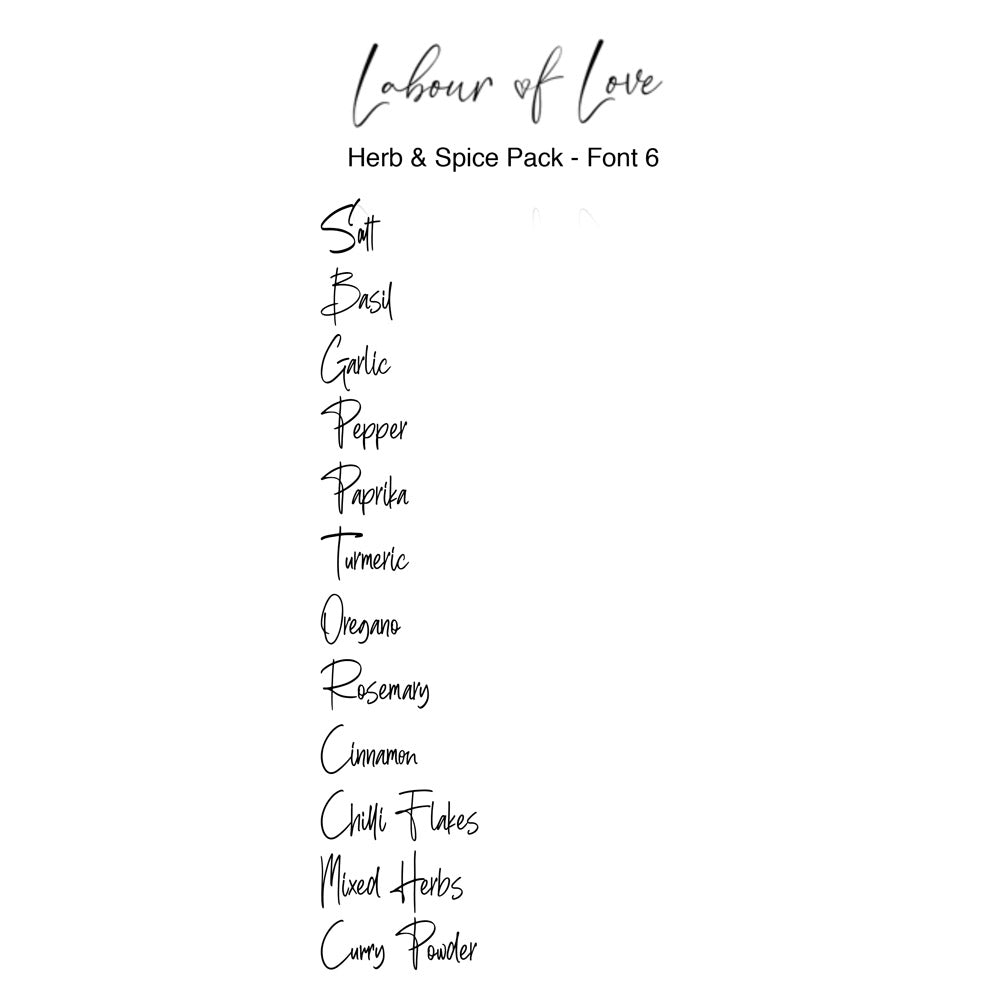 Labour of Love
Herb & Spice Pack - Font 6
Salt
Basil
Garlic
Pepper
Paprika
Turmeric
Oregano
Rosemary
Cinnamon
Chilli Flakes
Mixed Herbs
Curry Powder